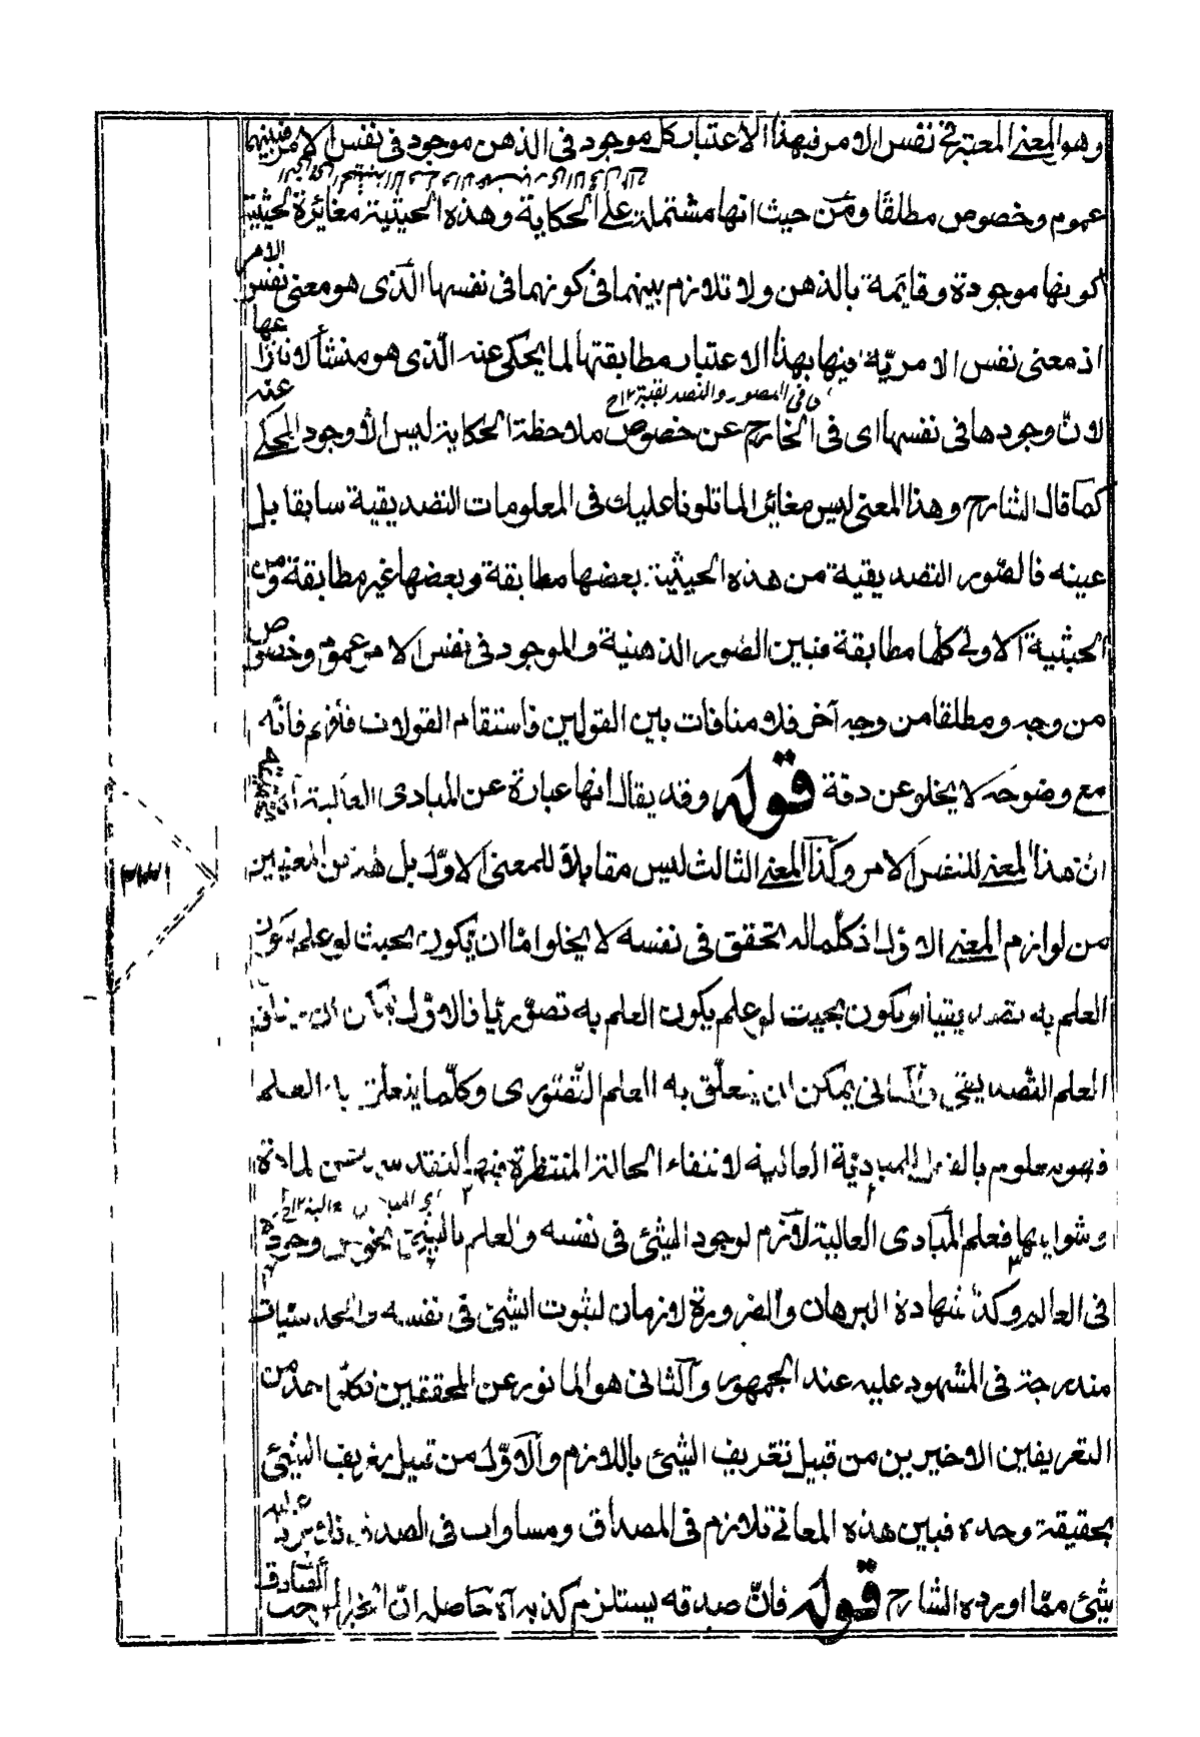 وهو المعنى المعتبر في نفس الامر فبهذا الاعتبار كل موجود فى الذهن موجود فى نفس الامر فبينهما
عموم وخصوص مطلقا ومن حيث انها مشتملة على الحكاية وهذه الحيثية مغائرة لحيثية
كونها موجودة وقائمة بالذهن ولا تلازم بينهما فى كونهما فى نفسها الذى هو معنى نفس الامر
اذ معنى نفس الامرية فيها بهذا الاعتبار مطابقتها لما يحكى عنه الذى هو منشأ لانتزاعها
لان وجودها فى نفسها اى فى الخارج عن خصوص ملاحظة الحكاية ليس الا وجود المحكى عنه
كما قال الشارح وهذا المعنى ليس مغائرا لما تلونا عليك فى المعلومات التصديقية سابقا بل
عينه فالصور التصديقية من هذه الحيثية بعضها مطابقة وبعضها غير مطابقة ومن
الحيثية الاولى كلها مطابقة فبين الصور الذهنية والموجود فى نفس الامر عموم وخصوص
من وجه ومطلقا من وجه آخر فلا منافات بين القولين فاستقام القولان فافهم فانه
مع وضوحه لا يخلو عن دقة قوله وقد يقال انها عبارة عن المبادى العالية آه
ان هذا المعنى للنفس الامر وكذا المعنى الثالث ليس مقابلا للمعنى الاول بل هذين المعنيين
من لوازم المعنى الاول اذ كلما له تحقق فى نفسه لا يخلو اما ان يكون بحيث لو علم يكون
العلم به تصديقيا او يكون بحيث لو علم يكون العلم به تصوريا فالاول
العلم التصديقى والثانى يمكن ان يتعلق به العلم التصورى وكلما يتعلق به العلم
فهو معلوم بالفعل للمبادئ العالية لانتفاء الحالة المنتظرة فيها لتقدسهن عن المادة
وشوايبها فعلم المبادى العالية لازم لوجود الشئ فى نفسه والعلم بالشئ وجوده
فى العالم وكذا شهادة البرهان والضرورة لازمان لثبوت الشئ فى نفسه والحدسيات
مندرجة فى المشهود عليه عند الجمهور والثانى هو المأثور عن المحققين فكل واحد من
التعريفين الاخيرين من قبيل تعريف الشئ باللازم والاول من قبيل تعريف الشئ
بحقيقة وحده فبين هذه المعانى تلازم فى المصداق ومساوات فى الصدق فلا يرد عليه
شئ مما اورده الشارح قوله فان صدقه يستلزم كذبه آه حاصله ان الخبر الصادق